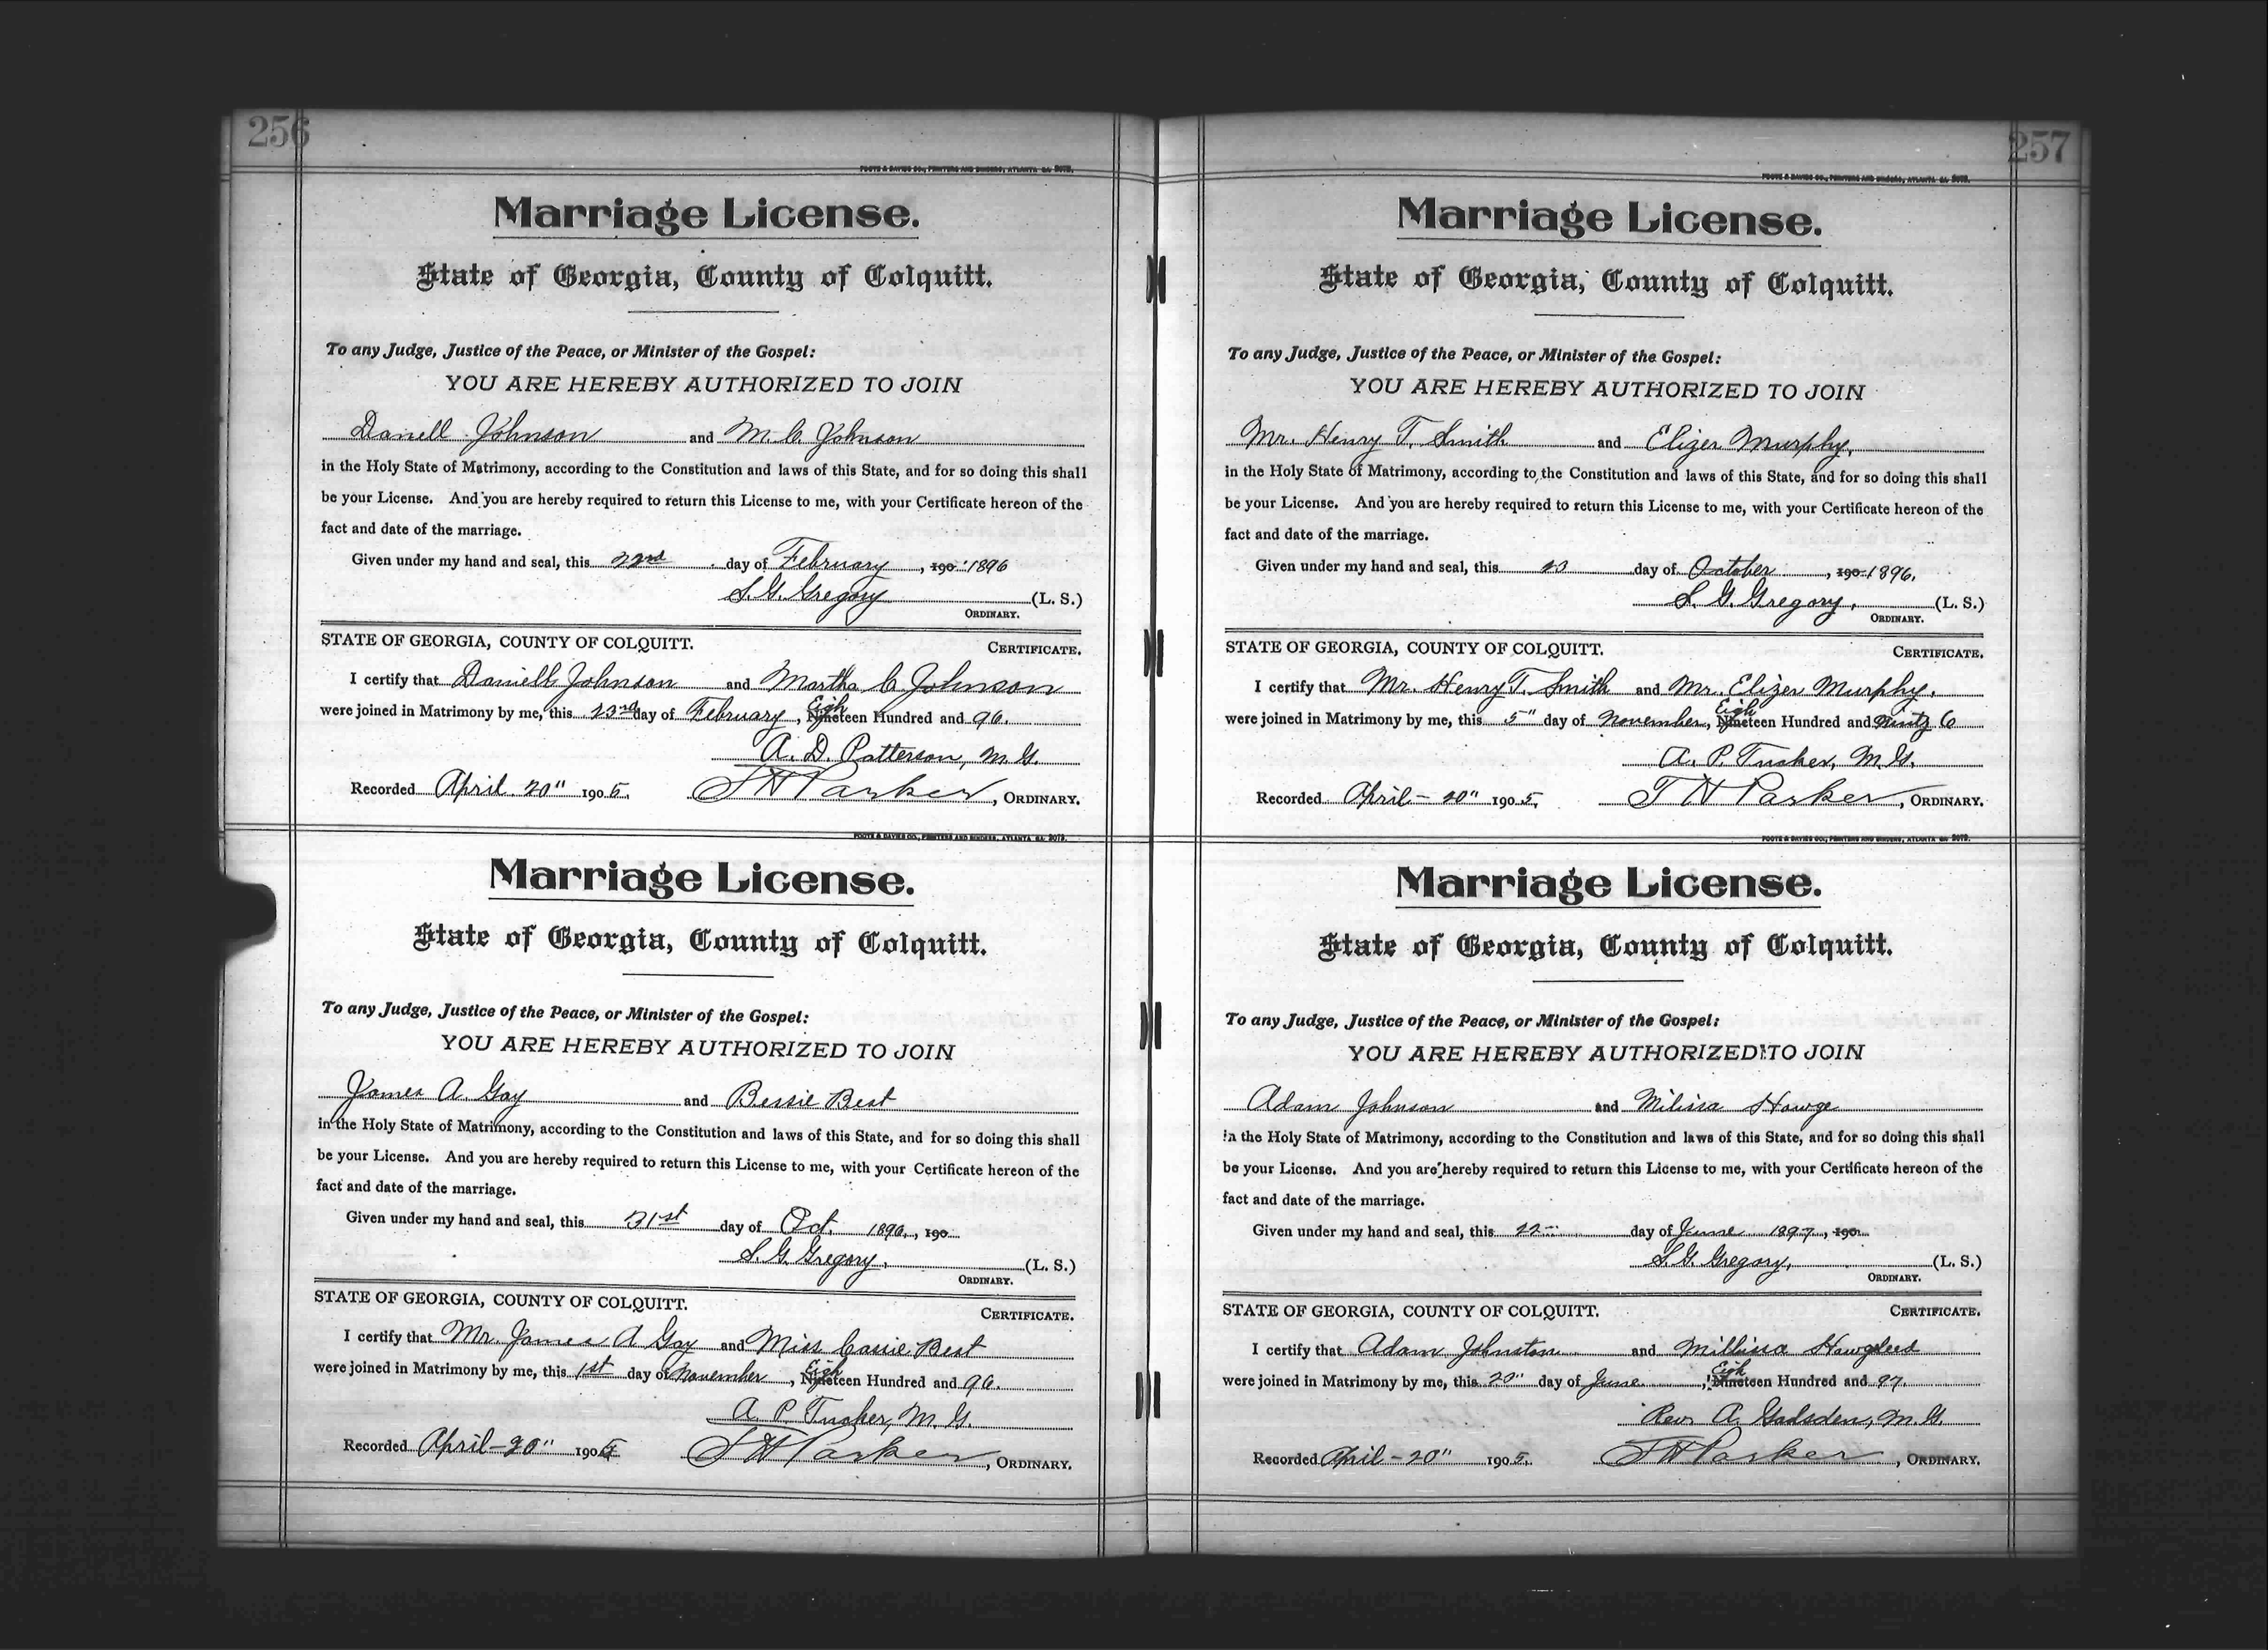 256
FOOTE & DAVIES CO., PRINTERS AND BINDERS, ATLANTA GA. 3073.
Marriage License.
State of Georgia, County of Colquitt.
To any Judge, Justice of the Peace, or Minister of the Gospel:
YOU ARE HEREBY AUTHORIZED TO JOIN
Daniell Johnson and M. C. Johnson
in the Holy State of Matrimony, according to the Constitution and laws of this State, and for so doing this shall
be your License. And you are hereby required to return this License to me, with your Certificate hereon of the
fact and date of the marriage.
Given under my hand and seal, this 22nd day of February, 190 1896
S. G. Gregory (L. S.)
ORDINARY.
STATE OF GEORGIA, COUNTY OF COLQUITT. CERTIFICATE.
I certify that Daniell Johnson and Martha C Johnson
were joined in Matrimony by me, this 23rd day of February, Eighteen Hundred and 96.
A. D. Patterson, M. G.
Recorded April 20" 1905. T H Parker, ORDINARY.
FOOTE & DAVIES CO., PRINTERS AND BINDERS, ATLANTA GA. 3073.
Marriage License.
State of Georgia, County of Colquitt.
To any Judge, Justice of the Peace, or Minister of the Gospel:
YOU ARE HEREBY AUTHORIZED TO JOIN
James A Gay and Bessie Best
in the Holy State of Matrimony, according to the Constitution and laws of this State, and for so doing this shall
be your License. And you are hereby required to return this License to me, with your Certificate hereon of the
fact and date of the marriage.
Given under my hand and seal, this 31st day of Oct. 1896, 190
S. G. Gregory, (L. S.)
ORDINARY.
STATE OF GEORGIA, COUNTY OF COLQUITT. CERTIFICATE.
I certify that Mr. James A Gay and Miss Cassie Best
were joined in Matrimony by me, this 1st day of November, Eighteen Hundred and 96.
A. P. Tucker, M. G.
Recorded April-20" 1905 T H Parker, ORDINARY.
257
FOOTE & DAVIES CO., PRINTERS AND BINDERS, ATLANTA GA. 3073.
Marriage License.
State of Georgia, County of Colquitt.
To any Judge, Justice of the Peace, or Minister of the Gospel:
YOU ARE HEREBY AUTHORIZED TO JOIN
Mr. Henry T. Smith and Elizer Murphy.
in the Holy State of Matrimony, according to the Constitution and laws of this State, and for so doing this shall
be your License. And you are hereby required to return this License to me, with your Certificate hereon of the
fact and date of the marriage.
Given under my hand and seal, this day of October, 190 1896.
S. G. Gregory, (L. S.)
ORDINARY.
STATE OF GEORGIA, COUNTY OF COLQUITT. CERTIFICATE.
I certify that Mr. Henry T. Smith and Mr. Elizer Murphy.
were joined in Matrimony by me, this 5" day of November, Eighteen Hundred and Ninty 6
A. P. Tucker, M. G.
Recorded April-20" 1905. T H Parker, ORDINARY.
FOOTE & DAVIES CO., PRINTERS AND BINDERS, ATLANTA GA. 3073.
Marriage License.
State of Georgia, County of Colquitt.
To any Judge, Justice of the Peace, or Minister of the Gospel:
YOU ARE HEREBY AUTHORIZED TO JOIN
Adam Johnson and Milissa Hawge
in the Holy State of Matrimony, according to the Constitution and laws of this State, and for so doing this shall
be your License. And you are hereby required to return this License to me, with your Certificate hereon of the
fact and date of the marriage.
Given under my hand and seal, this 22 day of June 1897, 190
S. G. Gregory, (L. S.)
ORDINARY.
STATE OF GEORGIA, COUNTY OF COLQUITT. CERTIFICATE.
I certify that Adam Johnston and Millissa
were joined in Matrimony by me, this day of June, Eighteen Hundred and 97.
Rev. A. Gadsden, M. G.
Recorded April-20" 1905. T H Parker, ORDINARY.